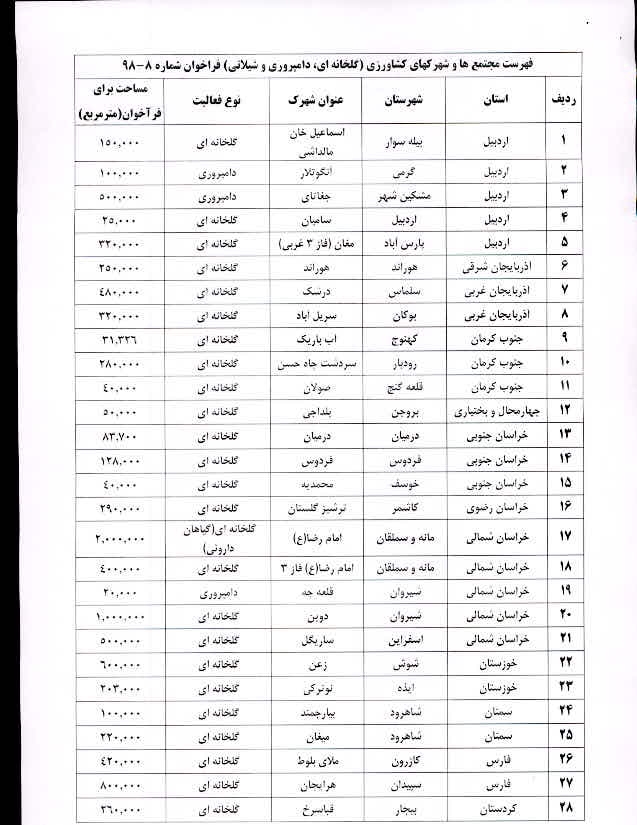 فهرست مجتمع ها و شهرکهای کشاورزی (گلخانه ای، دامپروری و شیلاتی) فراخوان شماره ۸-۹۸
ردیف استان شهرستان عنوان شهرک نوع فعالیت مساحت برای فرآخوان(مترمربع)
۱ اردبیل بیله سوار اسماعیل خان مالداشی گلخانه ای ۱۵۰,۰۰۰
۲ اردبیل گرمی انگوتلار دامپروری ۱۰۰,۰۰۰
۳ اردبیل مشکین شهر جغاتای دامپروری ۵۰۰,۰۰۰
۴ اردبیل اردبیل سامیان گلخانه ای ۲۵,۰۰۰
۵ اردبیل پارس اباد مغان (فاز ۳ غربی) گلخانه ای ۳۲۰,۰۰۰
۶ اذربایجان شرقی هوراند هوراند گلخانه ای ۲۵۰,۰۰۰
۷ اذربایجان غربی سلماس درشک گلخانه ای ٤۸۰,۰۰۰
۸ اذربایجان غربی بوکان سریل اباد گلخانه ای ۳۲۰,۰۰۰
۹ جنوب کرمان کهنوج اب باریک گلخانه ای ۳۱,۳۲٦
۱۰ جنوب کرمان رودبار سردشت چاه حسن گلخانه ای ۲۸۰,۰۰۰
۱۱ جنوب کرمان قلعه گنج صولان گلخانه ای ٤۰,۰۰۰
۱۲ چهارمحال و بختیاری بروجن بلداجی گلخانه ای ۵۰,۰۰۰
۱۳ خراسان جنوبی درمیان درمیان گلخانه ای ۸۳,۷۰۰
۱۴ خراسان جنوبی فردوس فردوس گلخانه ای ۱۲۸,۰۰۰
۱۵ خراسان جنوبی خوسف محمدیه گلخانه ای ٤۰,۰۰۰
۱۶ خراسان رضوی کاشمر ترشیز گلستان گلخانه ای ۲۹۰,۰۰۰
۱۷ خراسان شمالی مانه و سملقان امام رضا(ع) گلخانه ای(گیاهان دارویی) ۲,۰۰۰,۰۰۰
۱۸ خراسان شمالی مانه و سملقان امام رضا(ع) فاز ۳ گلخانه ای ٤۰۰,۰۰۰
۱۹ خراسان شمالی شیروان قلعه چه دامپروری ۲۰,۰۰۰
۲۰ خراسان شمالی شیروان دوین گلخانه ای ۱,۰۰۰,۰۰۰
۲۱ خراسان شمالی اسفراین ساریگل گلخانه ای ۵۰۰,۰۰۰
۲۲ خوزستان شوش زعن گلخانه ای ٦۰۰,۰۰۰
۲۳ خوزستان ایذه نوترکی گلخانه ای ۲۰۳,۰۰۰
۲۴ سمنان شاهرود بیارجمند گلخانه ای ۱۰۰,۰۰۰
۲۵ سمنان شاهرود میغان گلخانه ای ۲۲۰,۰۰۰
۲۶ فارس کازرون ملای بلوط گلخانه ای ٤۲۰,۰۰۰
۲۷ فارس سپیدان هرایجان گلخانه ای ۸۰۰,۰۰۰
۲۸ کردستان بیجار قباسرخ گلخانه ای ۳٦۰,۰۰۰